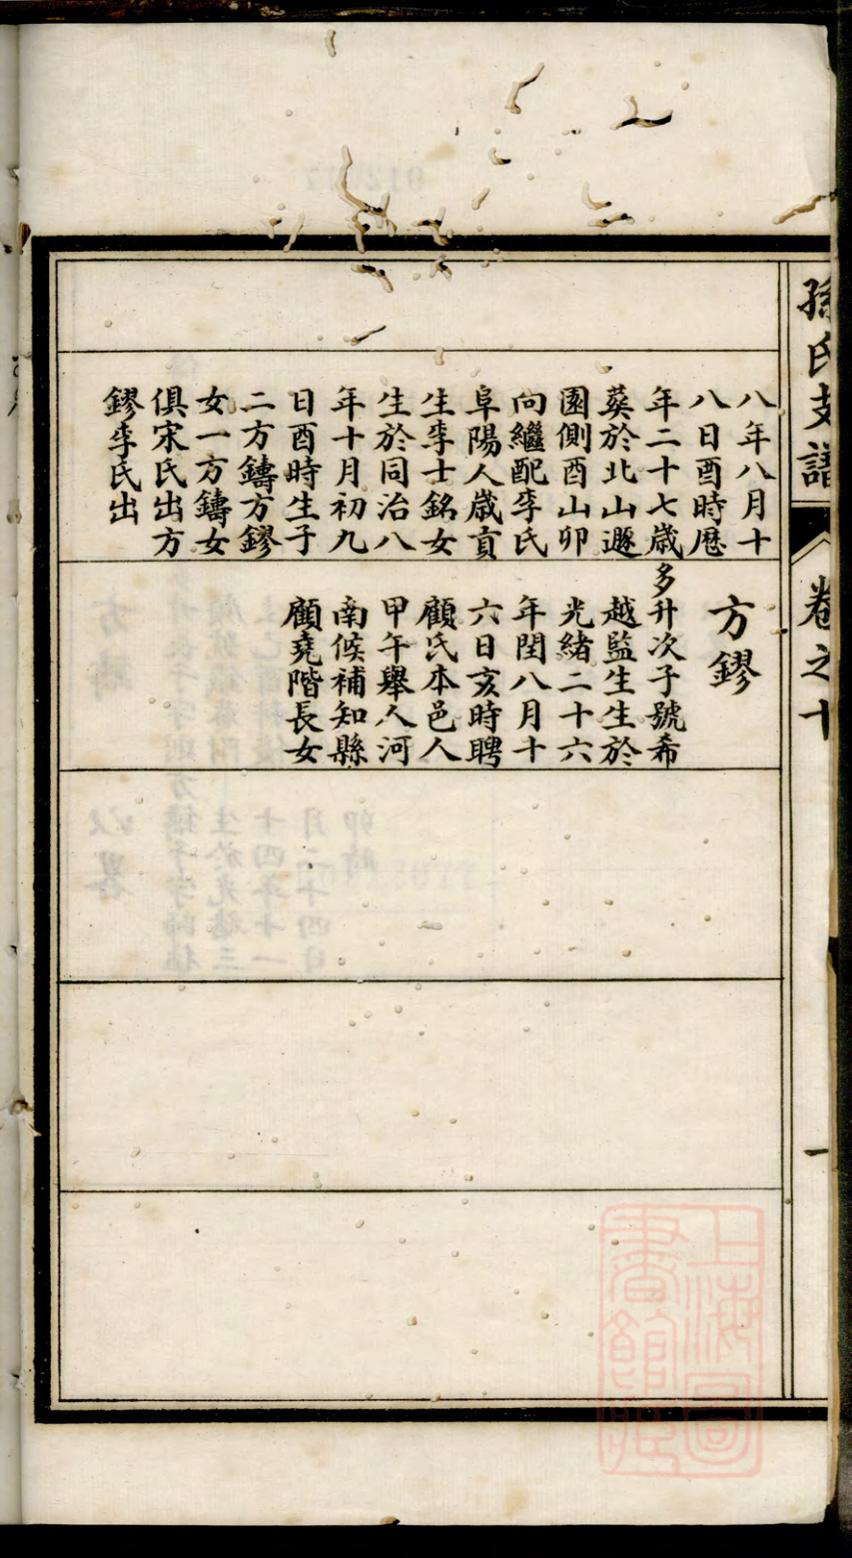 孫氏支譜
卷之十
一
八年八月十
八日酉時歴
年二十七歳
葬於北山遯
園側酉山卯
向繼配李氏
阜陽人歳貢
生李士銘女
生於同治八
年十月初九
日酉時生子
二方鑄方鏐
女一方鑄女
俱宋氏出方
鏐李氏出
方鏐
多升次子號希
越監生生於
光緒二十六
年閏八月十
六日亥時聘
顧氏本邑人
甲午舉人河
南候補知縣
顧堯階長女
上海圖
書館藏